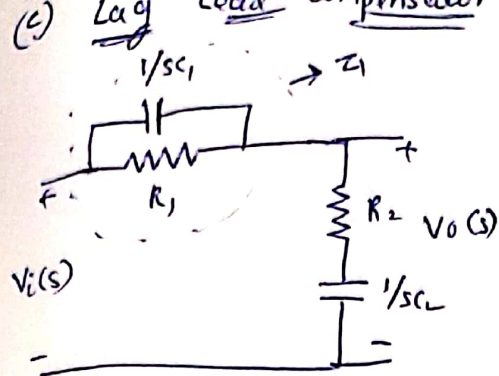 (c) Lag Lead Compensator
1/SC1
→ Z1
+
R1
+
R2
Vo(s)
Vi(s)
1/SC2
-
-